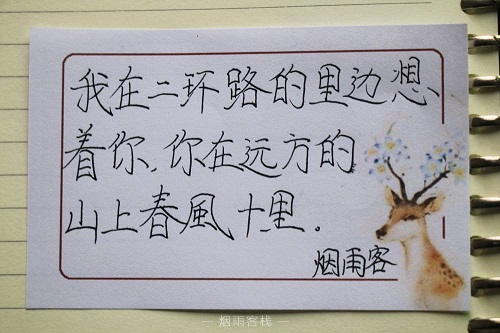 我在二环路的里边想、
着你,你在远方的
山上春風十里。
烟雨客
— 烟雨客栈 —